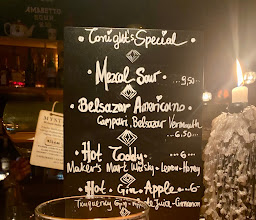 Tonight's Special
• Mezcal Sour ... 9,50
• Belsazar Americano
Campari, Belsazar Vermouth
6.50
• Hot Toddy - 6
Maker's Mark Whisky - Lemon - Honey
• Hot - Gin - Apple - 6
Tanqueray Gin - Apple Juice - Cinnamon